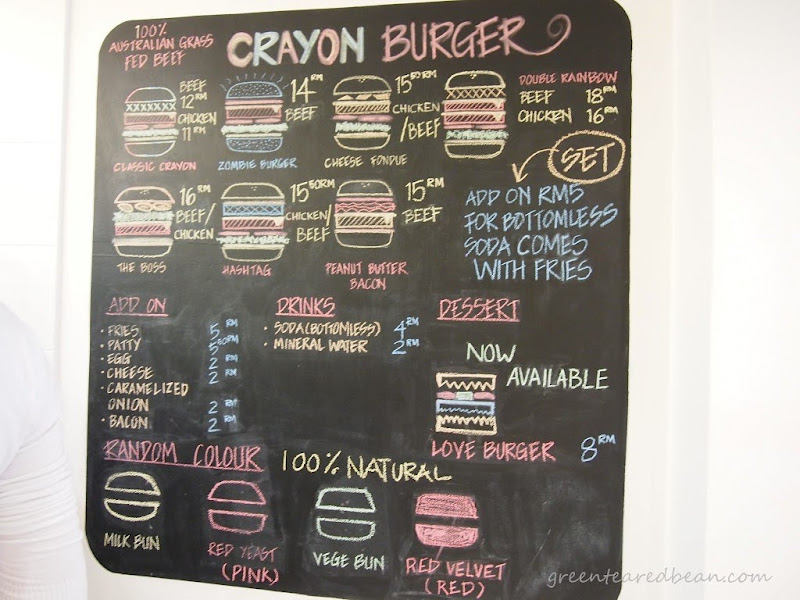 100%
AUSTRALIAN GRASS
FED BEEF
CRAYON BURGER
BEEF
12RM
CHICKEN
11RM
CLASSIC CRAYON
14RM
BEEF
ZOMBIE BURGER
15.50RM
CHICKEN
/BEEF
CHEESE FONDUE
DOUBLE RAINBOW
BEEF 18RM
CHICKEN 16RM
SET
ADD ON RM5
FOR BOTTOMLESS
SODA COMES
WITH FRIES
16RM
BEEF/
CHICKEN
THE BOSS
15.50RM
CHICKEN/
BEEF
HASHTAG
15RM
BEEF
PEANUT BUTTER
BACON
ADD ON
• FRIES 5RM
• PATTY 5.50RM
• EGG 2RM
• CHEESE 2RM
• CARAMELIZED
ONION 2RM
• BACON 2RM
DRINKS
• SODA (BOTTOMLESS) 4RM
• MINERAL WATER 2RM
DESSERT
NOW
AVAILABLE
LOVE BURGER 8RM
RANDOM COLOUR
100% NATURAL
MILK BUN
RED YEAST
(PINK)
VEGE BUN
RED VELVET
(RED)
greentearedbean.com